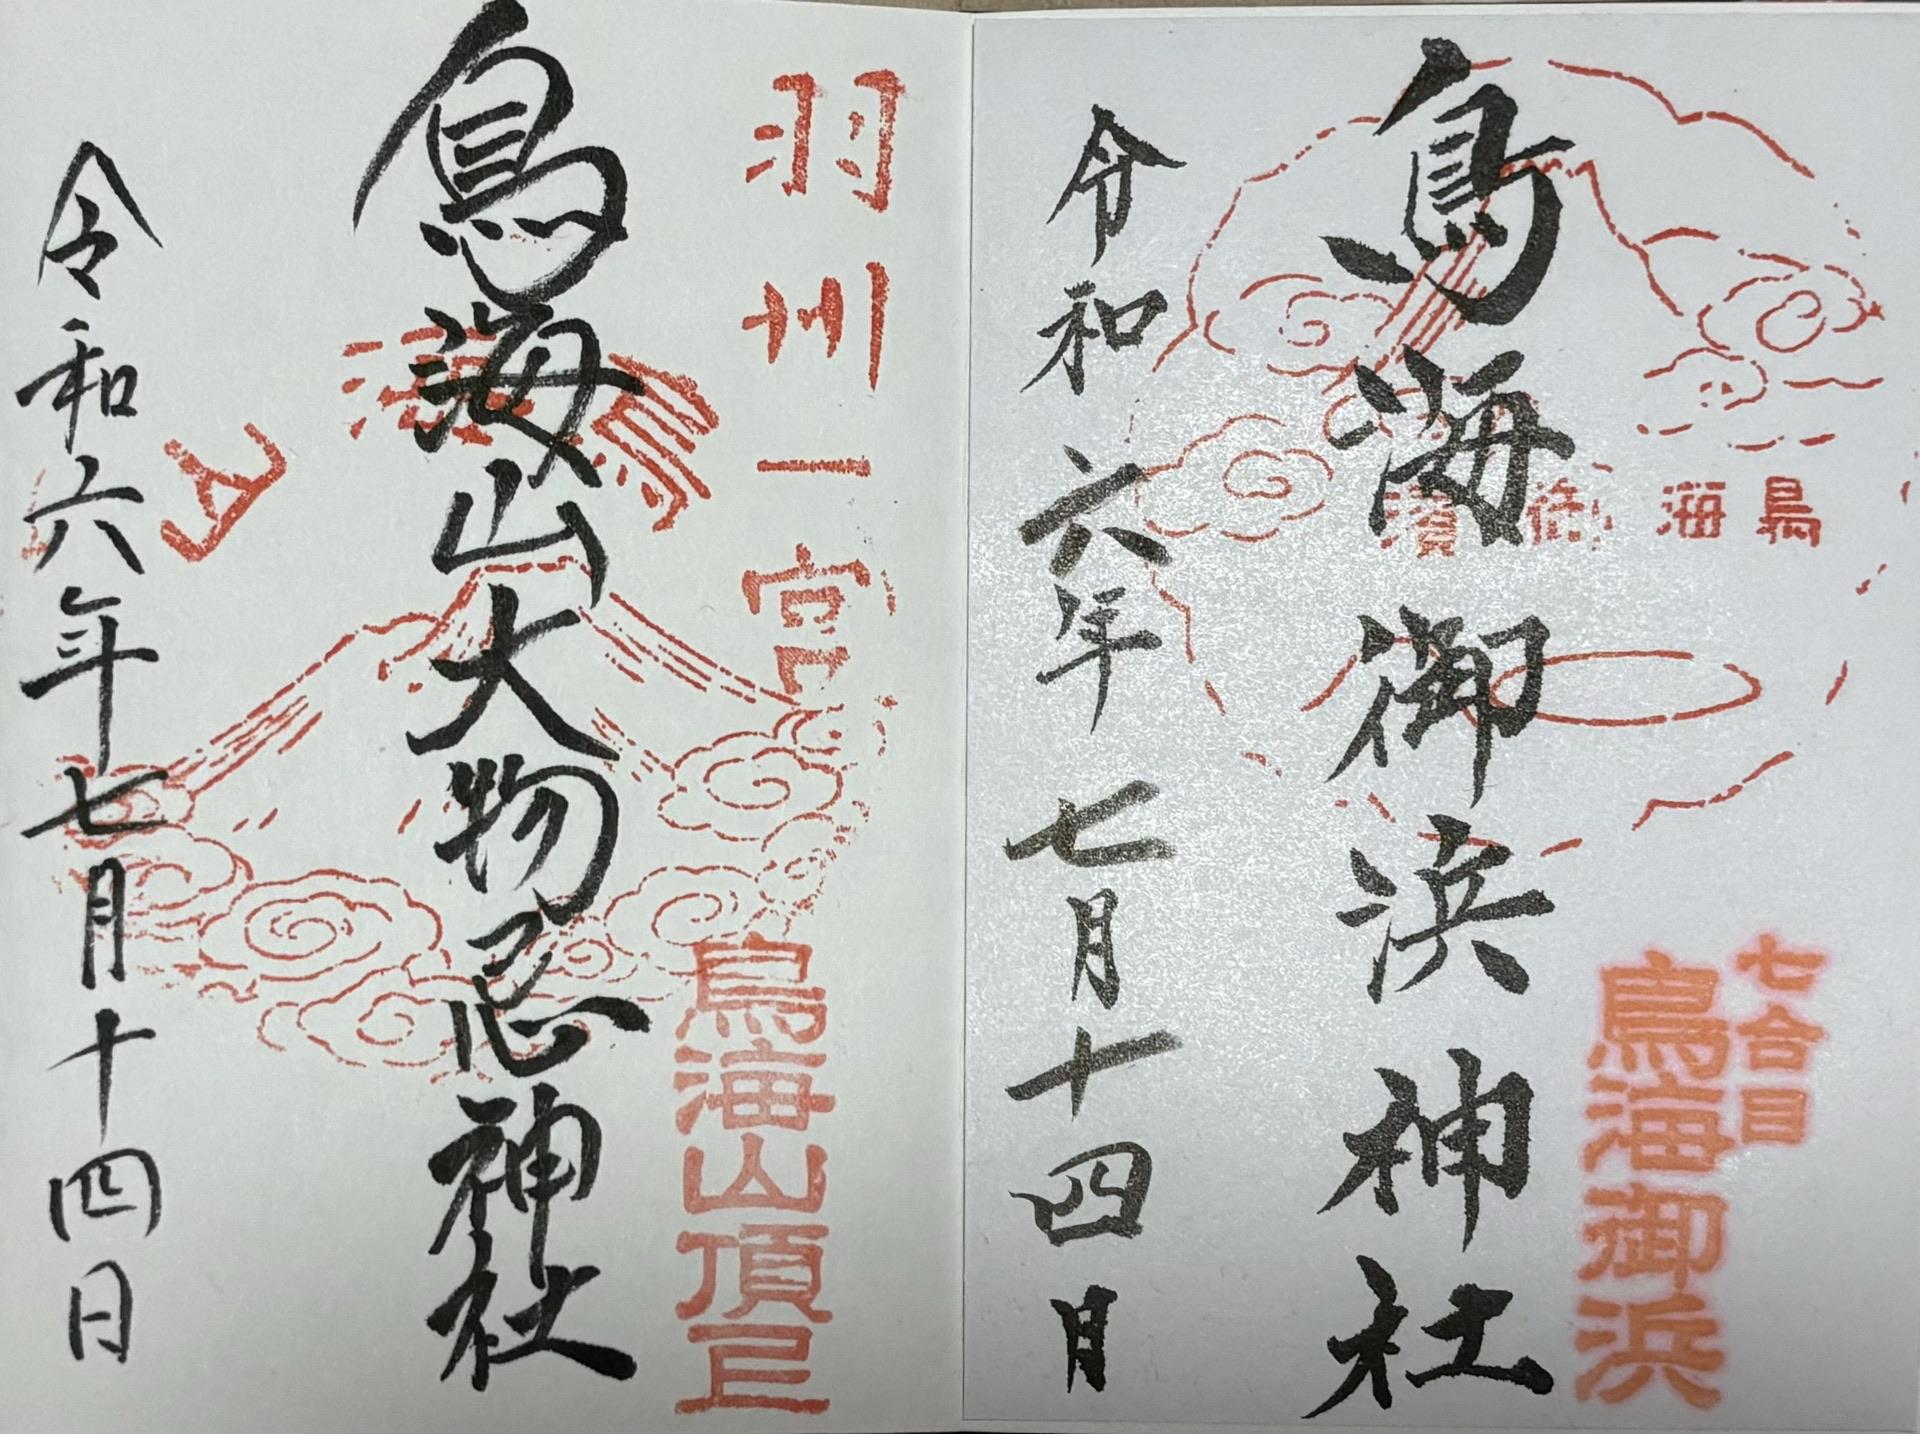 七合目
鳥海御浜
鳥海御濱
鳥海御浜神社
令和六年七月十四日
羽州一宮
鳥海山頂上
鳥海山
鳥海山大物忌神社
令和六年七月十四日